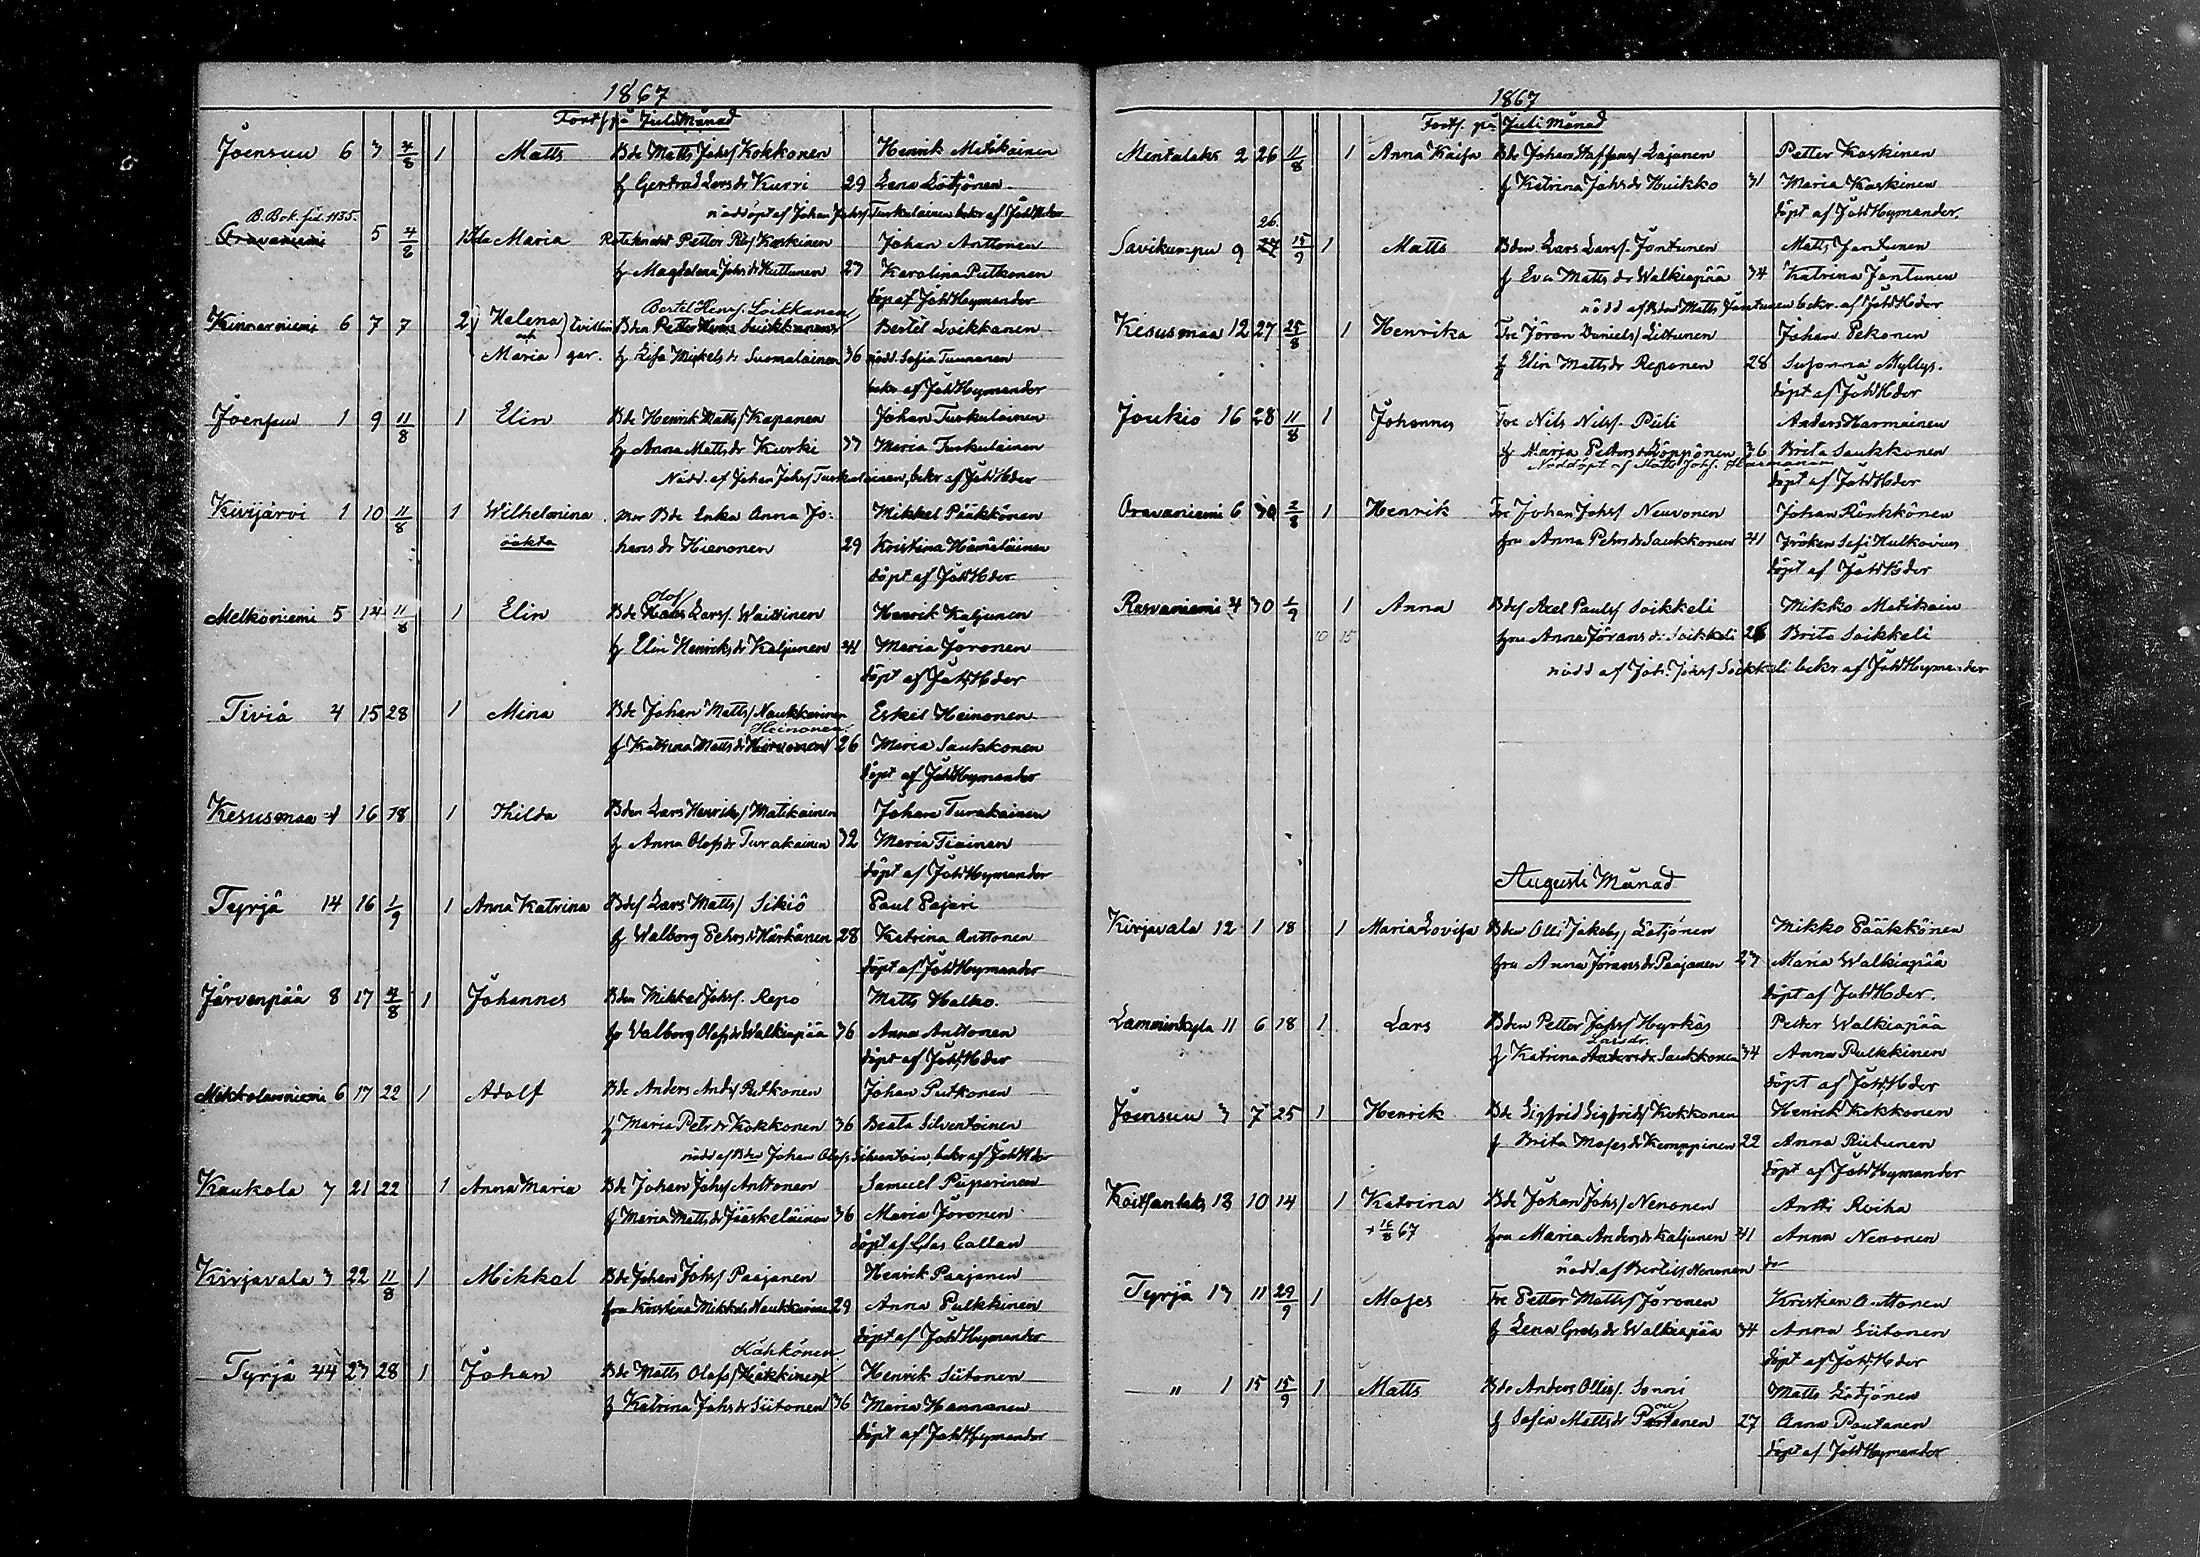 1867
Forts på Juli Månad
Joensuu 6 3 4/8 1 Matts Bde Matts Johs/ Kokkonen Henrik Matikainen
f Gertrud Larsdr Kurri 29 Lena Lötjönen
nöddöpt af Johan Johs/ Turkulainen bekr af JohHder
B. Bok. fol. 1135.
Oravaniemi 5 4/8 1 Ida Maria Petter Koskinen Johan Anttonen
f Magdalena Johsdr Huttunen 27 Karolina Putkonen
döpt af Joh Heymander
Bertel Henr/. Loikkanen
Kinnarniemi 6 7 7 2 Helena tvillin Bden Petter Henrs Loikkanen Bertil Loikkanen
och
Maria gar. f Lisa Mickelsdr Suomalainen 36 nödd Sofia Tuunanen
bekr af Joh Heymander
Joensuu 1 9 11/8 1 Elin Bde Henrik Matts/ Kapanen Johan Turkulainen
f Anna Mattsdr Kurki 37 Maria Turkulainen
Nödd. af Johan Johs/ Turkulainen, bekr af Joh Hder
Kivijärvi 1 10 11/8 1 Wilhelmina mor Bde Enka Anna Jo- Mikkel Pääkkönen
oäkta hansdr Hienonen 29 Kristina Hämäläinen
döpt af Joh Hder
Olof
Melkoniemi 5 14 11/8 1 Elin Bde Lars/. Waittinen Henrik Kaljunen
f Elin Henriksdr Kaljunen 41 Maria Joronen
döpt af Joh Hder
Tiviä 4 15 28 1 Mina Bde Johan Matts/ Naukkarinen Eskel Heinonen
Heinonen
f Katrina Mattsdr Hirvonen 26 Maria Saukkonen
döpt af Joh Heymander
Kesusmaa 1 16 18 1 Hilda Bden Lars Henriks/ Matikainen Johan Turakainen
f Anna Olofsdr Turakainen 32 Maria Tiainen
döpt af Joh Heymander
Tyrjä 14 16 1/9 1 Anna Katrina Bdes Lars Matts/ Sikiö Paul Pajari
f Walborg Pehrsdr Härkönen 28 Katrina Anttonen
döpt af Joh Heymander
Järvenpää 8 17 4/8 1 Johannes Bden Mikkel Johs/. Repo Matts Halko.
fr Valborg Olofsdr Walkiapää 36 Anna Anttonen
döpt af Joh Hder
Mikkolanniemi 6 17 22 1 Adolf Bde Anders Ands/ Putkonen Johan Putkonen
f Maria Petsdr Kokkonen 36 Beata Silventoinen
nödd af Bden Johan Olofs Silventoin, bekr af Joh Hder
Kaukola 7 21 22 1 Anna Maria Bde Johan Johs/ Anttonen Samuel Piiparinen
f Maria Mattsdr Jääskeläinen 36 Maria Joronen
döpt af Clas Collan
Kirjavala 3 22 11/8 1 Mikkel Bde Johan Johs/ Paajanen Henrik Paajanen
fru Kristina Mikkelsdr Naukkarinen 29 Anna Pulkkinen
döpt af Joh Heymander
Kähkönen
Tyrjä 44 27 28 1 Johan Bde Matts Olofs/ Häkkinen Henrik Siitonen
f Katrina Johsdr Siitonen 36 Maria Hannonen
döpt af Joh Heymander
1867
Forts. på Juli Månad
Mentulaks 2 26 11/8 1 Anna Kaisa Bde Johan Staffans/ Lajunen Petter Koskinen
f Katrina Johsdr Huikko 31 Maria Koskinen
döpt af Joh Heymander.
26.
Savikumpu 9 27 15/9 1 Matts Bden Lars Lars/. Jantunen Matts Jantunen
f Eva Mattsdr Walkiapää 34 Katrina Jantunen
nödd af Bden Matts Jantunen bekr. af Joh Hder
Kesusmaa 12 27 25/8 1 Henrika Tre Jöran Daniels/ Littunen Johan Pekonen
f Elin Mattsdr Reponen 28 Susanna Myllys.
döpt af Joh Hder
Joukio 16 28 11/8 1 Johannes Tre Nils Nils/. Piili Anders Harmainen
f Maria Petersdr Löppönen 36 Brita Saukkonen
Nöddöpt af Matts Johs. Harmanen
döpt af Joh Hder
Oravaniemi 6 30 2/8 1 Henrik Tre Johan Johs/ Neuvonen Johan Rönkkönen
fru Anna Pehrsdr Saukkonen 41 fröken Sofi Hulkovius
döpt af Joh Hder
Rasvaniemi 4 30 1/9 1 Anna Bdes Axel Pauls/ Soikkeli Mikko Matikain
10 15 fru Anna Jöransdr Soikkeli 26 Brita Soikkeli
nödd af Joh. Johs/ Soikkeli bekr af Joh Heymander
Augusti Månad
Kirjavala 12 1 18 1 Maria Lovisa Bden Olli Jakobs/ Lötjönen Mikko Pääkkönen
fru Anna Jöransdr Paajanen 27 Maria Walkiapää
döpt af Joh Hder.
Lamminkylä 11 6 18 1 Lars Bden Petter Johs/ Hyrkäs Petter Walkiapää
Larsdr.
f Katrina Andersdr Saukkonen 34 Anna Pulkkinen
döpt af Joh Hder
Joensuu 3 7 25 1 Henrik Bde Sigfrid Sigfrids/ Kokkonen Henrik Kokkonen
f Brita Mosesdr Kemppinen 22 Anna Ruitunen
döpt af Joh Heymander
Koitsanlaks 13 10 14 1 Katrina Bde Johan Johs/ Nenonen Antti Roiha
+ 16/8 67 fru Maria Andersdr Kaljunen 41 Anna Nenonen
nödd. af Bertils Nenonen do
Tyrjä 13 11 29/9 1 Moses Tre Petter Matts/ Joronen Kristian Anttonen
f Lena Grelsdr Walkiapää 34 Anna Siitonen
döpt af Joh Hder
— " 1 15 15/9 1 Matts Bde Anders Ollis/. Sonni Matts Lötjönen
f Sofia Mattsdr Poutanen 27 Anna Poutanen
döpt af Joh Heymander